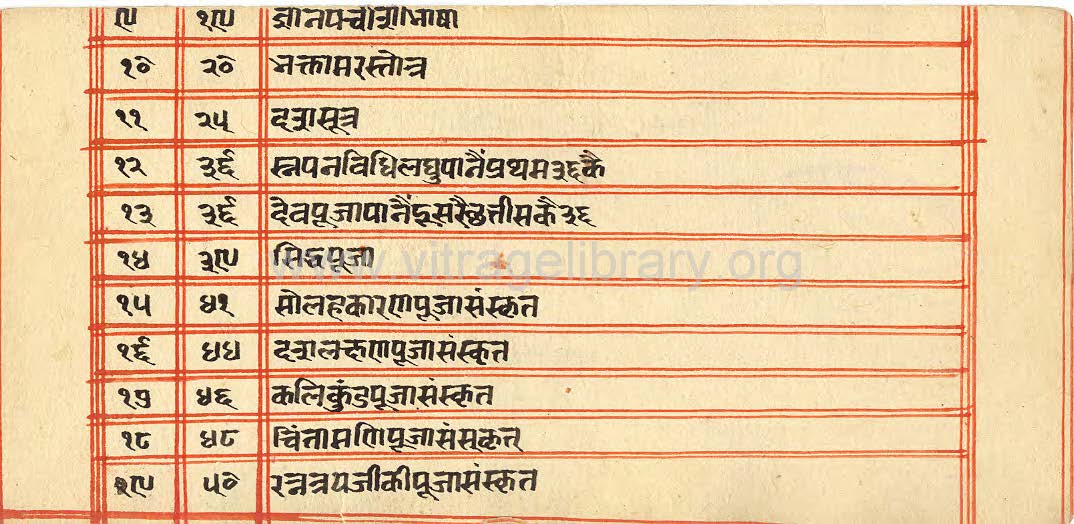 ९ १९ ज्ञानपच्चीशीभाषा
१० २० भक्तामरस्तोत्र
११ २५ दशासूत्र
१२ ३६ स्नपनविधिलघुपानैंप्रथम३६कै
१३ ३६ देवपूजापानैंदूसरैछत्तीसकै३६
१४ ३९ सिद्धपूजा
www.vitragelibrary.org
१५ ४१ सोलहकारणपूजासंस्कृत
१६ ४४ दशलक्षणपूजासंस्कृत
१७ ४६ कलिकुंडपूजासंस्कृत
१८ ४८ चिंतामणिपूजासंस्कृत
१९ ५० रत्नत्रयजीकीपूजासंस्कृत